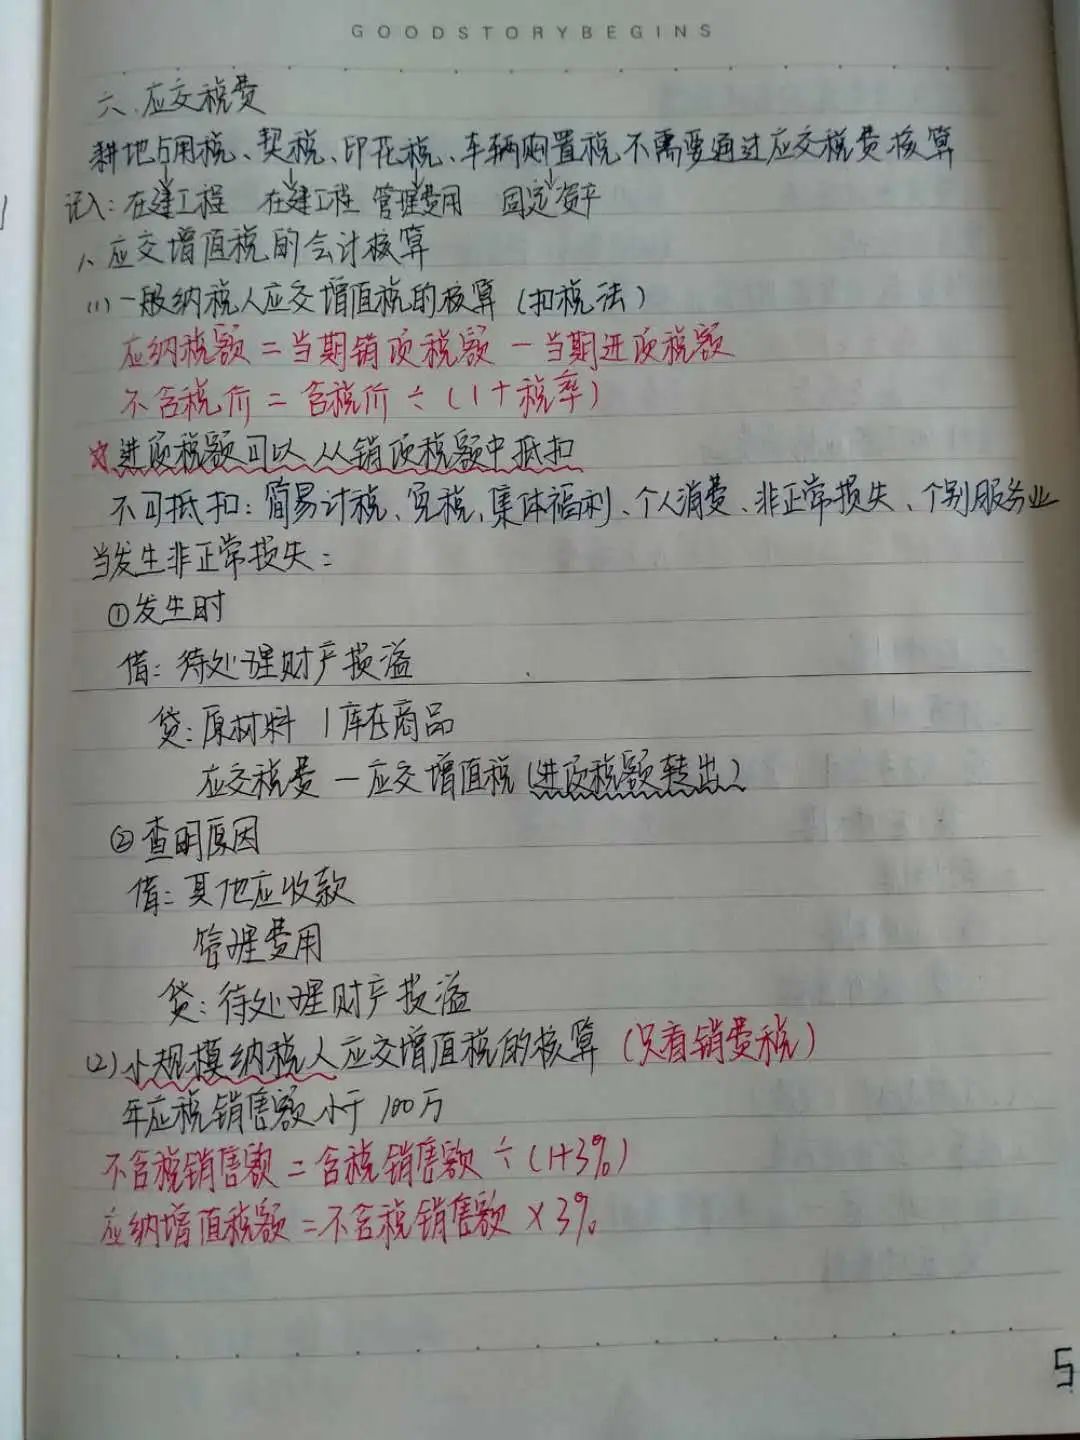 GOODSTORYBEGINS
六、应交税费
耕地占用税、契税、印花税、车辆购置税不需要通过应交税费核算
记入:在建工程 在建工程 管理费用 固定资产
1、应交增值税的会计核算
(1)一般纳税人应交增值税的核算(扣税法)
应纳税额=当期销项税额-当期进项税额
不含税价=含税价÷(1+税率)
☆进项税额可以从销项税额中抵扣
不可抵扣:简易计税、免税、集体福利、个人消费、非正常损失、个别服务业
当发生非正常损失:
①发生时
借:待处理财产损溢
贷:原材料 / 库存商品
应交税费—应交增值税(进项税额转出)
②查明原因
借:其他应收款
管理费用
贷:待处理财产损溢
(2)小规模纳税人应交增值税的核算(只有销费税)
年应税销售额小于100万
不含税销售额=含税销售额÷(1+3%)
应纳增值税额=不含税销售额×3%
5